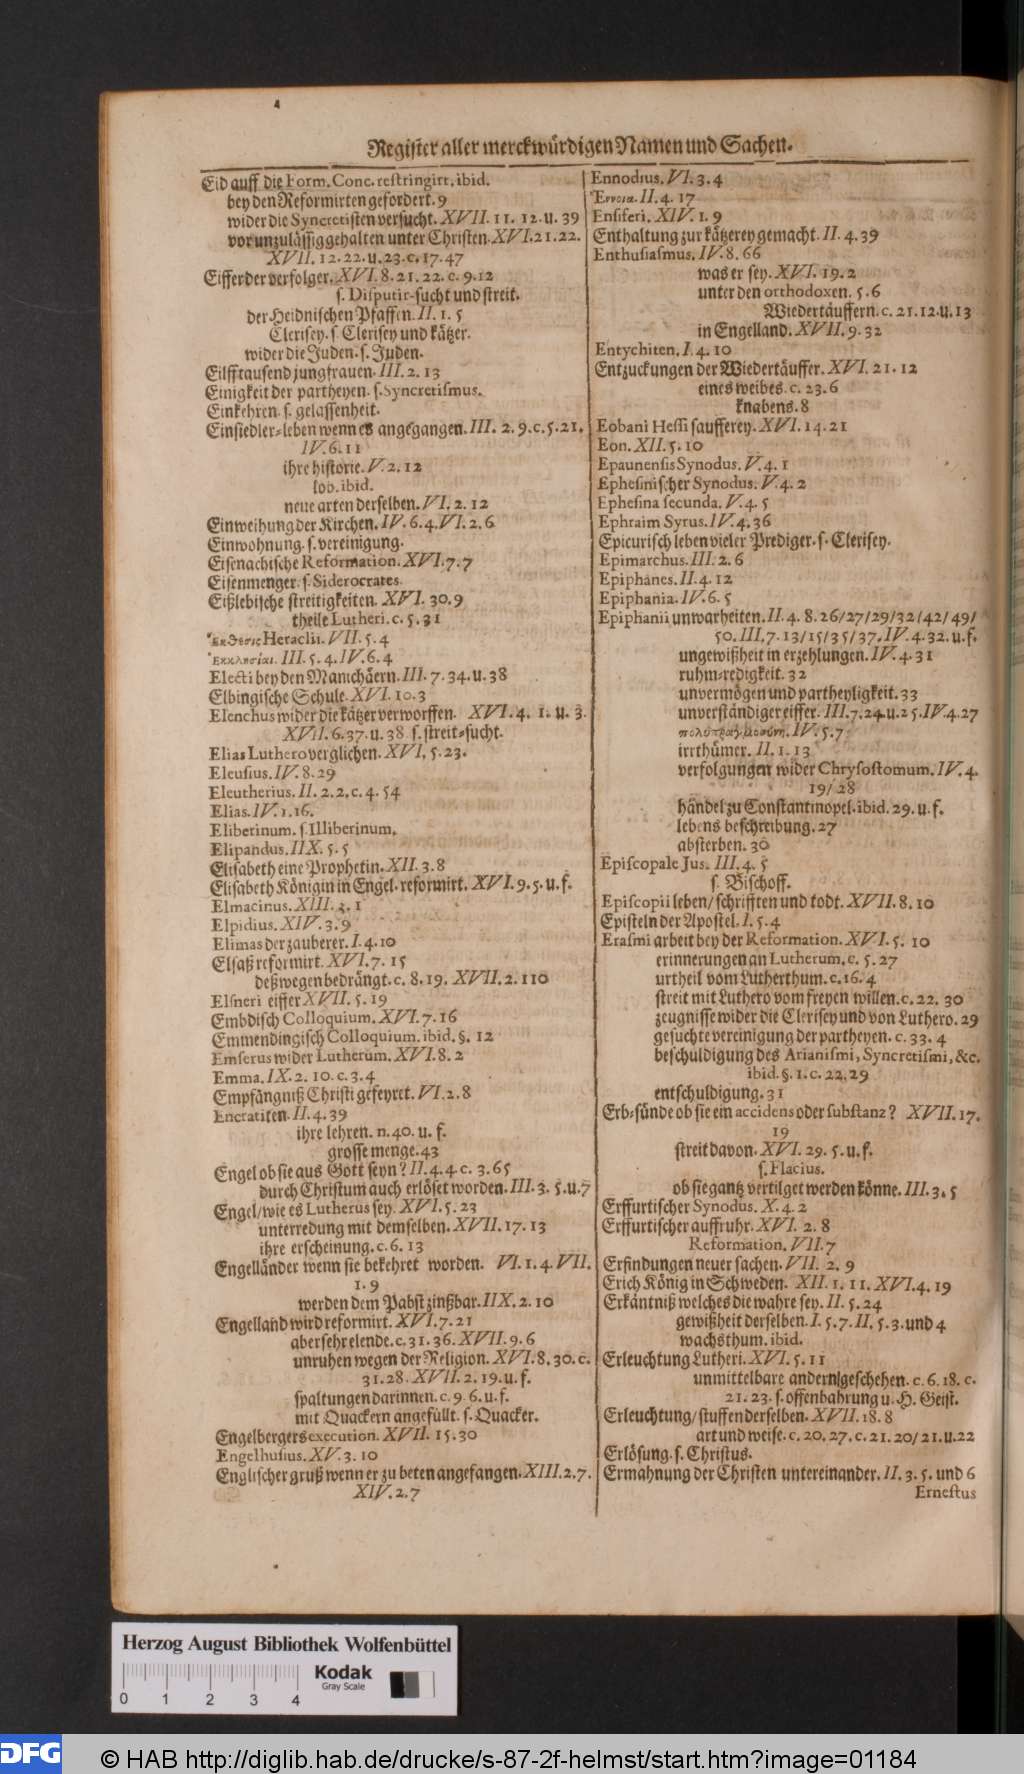 Register aller merckwürdigen Namen und Sachen.
Eid auff die Form. Conc. restringirt. ibid.
bey den Reformirten gefordert. 9
wider die Syncretisten versucht. XVII. 11. 12. u. 39
vor unzulässig gehalten unter Christen. XVI. 21. 22.
XVII. 12. 22. u. 23. c. 17. 47
Eifferder verfolger. XVI. 8. 21. 22. c. 9. 12
s. Disputir-sucht und streit.
der Heidnischen Pfaffen. II. 1. 5
Clerisey. s. Clerisey und kätzer.
wider die Juden. s. Juden.
Eilfftausend jungfrauen. III. 2. 13
Einigkeit der partheyen. s. Syncretismus.
Einkehren. s. gelassenheit.
Einsiedler-leben wenn es angegangen. III. 2. 9. c. 5. 21.
IV. 6. 11
ihre historie. V. 2. 12
lob. ibid.
neue arten derselben. VI. 2. 12
Einweihung der Kirchen. IV. 6. 4. VI. 2. 6
Einwohnung. s. vereinigung.
Eisenachische Reformation. XVI. 7. 7
Eisenmenger. s. Siderocrates.
Eißlebische streitigkeiten. XVI. 30. 9
theile Lutheri. c. 5. 31
Ἔκθεσις Heraclii. VII. 5. 4
Ἐκκλησίαι. III. 5. 4. IV. 6. 4
Electi bey den Manichäern. III. 7. 34. u. 38
Elbingische Schule. XVI. 10. 3
Elenchus wider die kätzer verworffen. XVI. 4. 1. u. 3.
XVII. 6. 37. u. 38. s. streit-sucht.
Elias Luthero verglichen. XVI. 5. 23.
Eleusius. IV. 8. 29
Eleutherius. II. 2. 2. c. 4. 54
Elias. IV. 1. 16.
Eliberinum. s. Illiberinum.
Elipandus. IIX. 5. 5
Elisabeth eine Prophetin. XII. 3. 8
Elisabeth Königin in Engel. reformirt. XVI. 9. 5. u. f.
Elmacinus. XIII. 3. 1
Elpidius. XIV. 3. 9
Elimas der zauberer. I. 4. 10
Elsaß reformirt. XVI. 7. 15
deßwegen bedrängt. c. 8. 19. XVII. 2. 110
Elsneri eiffer XVII. 5. 19
Embdisch Colloquium. XVI. 7. 16
Emmendingisch Colloquium. ibid. §. 12
Emserus wider Lutherum. XVI. 8. 2
Emma. IX. 2. 10. c. 3. 4
Empfängniß Christi gefeyret. VI. 2. 8
Encratiten. II. 4. 39
ihre lehren. n. 40. u. f.
grosse menge. 43
Engel ob sie aus Gott seyn? II. 4. 4. c. 3. 65
durch Christum auch erlöset worden. III. 3. 5. u. 7
Engel/ wie es Lutherus sey. XVI. 5. 23
unterredung mit demselben. XVII. 17. 13
ihre erscheinung. c. 6. 13
Engelländer wenn sie bekehret worden. VI. 1. 4. VII.
1. 9
werden dem Pabst zinßbar. IIX. 2. 10
Engelland wird reformirt. XVI. 7. 21
aber sehr elende. c. 31. 36. XVII. 9. 6
unruhen wegen der Religion. XVI. 8. 30. c.
31. 28. XVII. 2. 19. u. f.
spaltungen darinnen. c. 9. 6. u. f.
mit Quackern angefüllt. s. Quacker.
Engelbergers execution. XVII. 15. 30
Engelhusius. XV. 3. 10
Englischer gruß wenn er zu beten angefangen. XIII. 2. 7.
XIV. 2. 7
Ennodius. VI. 3. 4
Ἔννοια. II. 4. 17
Ensiferi. XIV. 1. 9
Enthaltung zur kätzerey gemacht. II. 4. 39
Enthusiasmus. IV. 8. 66
was er sey. XVI. 19. 2
unter den orthodoxen. 5. 6
Wiedertäuffern. c. 21. 12. u. 13
in Engelland. XVII. 9. 32
Entychiten. I. 4. 10
Entzuckungen der Wiedertäuffer. XVI. 21. 12
eines weibes. c. 23. 6
knabens. 8
Eobani Hessi saufferey. XVI. 14. 21
Eon. XII. 5. 10
Epaunensis Synodus. V. 4. 1
Ephesinischer Synodus. V. 4. 2
Ephesina secunda. V. 4. 5
Ephraim Syrus. IV. 4. 36
Epicurisch leben vieler Prediger. s. Clerisey.
Epimarchus. III. 2. 6
Epiphanes. II. 4. 12
Epiphania. IV. 6. 5
Epiphanii unwarheiten. II. 4. 8. 26/27/29/32/42/49/
50. III. 7. 13/15/35/37. IV. 4. 32. u. f.
ungewißheit in erzehlungen. IV. 4. 31
ruhm-redigkeit. 32
unvermögen und partheyligkeit. 33
unverständiger eiffer. III. 7. 24. u. 25. IV. 4. 27
πολυπραγμοσύνη. IV. 5. 7
irrthümer. II. 1. 13
verfolgungen wider Chrysostomum. IV. 4.
19/ 28
händel zu Constantinopel. ibid. 29. u. f.
lebens beschreibung. 27
absterben. 30
Episcopale Jus. III. 4. 5
s. Bischoff.
Episcopii leben/ schrifften und todt. XVII. 8. 10
Episteln der Apostel. I. 5. 4
Erasmi arbeit bey der Reformation. XVI. 5. 10
erinnerungen an Lutherum. c. 5. 27
urtheil vom Lutherthum. c. 16. 4
streit mit Luthero vom freyen willen. c. 22. 30
zeugnisse wider die Clerisey und von Luthero. 29
gesuchte vereinigung der partheyen. c. 33. 4
beschuldigung des Arianismi, Syncretismi, &c.
ibid. §. 1. c. 22. 29
entschuldigung. 31
Erb-sünde ob sie ein accidens oder substanz? XVII. 17.
19
streit davon. XVI. 29. 5. u. f.
s. Flacius.
ob sie gantz vertilget werden könne. III. 3. 5
Erffurtischer Synodus. X. 4. 2
Erffurtischer auffruhr. XVI. 2. 8
Reformation. VII. 7
Erfindungen neuer sachen. VII. 2. 9
Erich König in Schweden. XII. 1. 11. XVI. 4. 19
Erkäntniß welches die wahre sey. II. 5. 24
gewißheit derselben. I. 5. 7. II. 5. 3. und 4
wachsthum. ibid.
Erleuchtung Lutheri. XVI. 5. 11
unmittelbare andern geschehen. c. 6. 18. c.
21. 23. s. offenbahrung u. H. Geist.
Erleuchtung/ stuffen derselben. XVII. 18. 8
art und weise. c. 20. 27. c. 21. 20/21. u. 22
Erlösung. s. Christus.
Ermahnung der Christen untereinander. II. 3. 5. und 6
Ernestus
Herzog August Bibliothek Wolfenbüttel
Kodak
Gray Scale
0 1 2 3 4
DFG
© HAB http://diglib.hab.de/drucke/s-87-2f-helmst/start.htm?image=01184